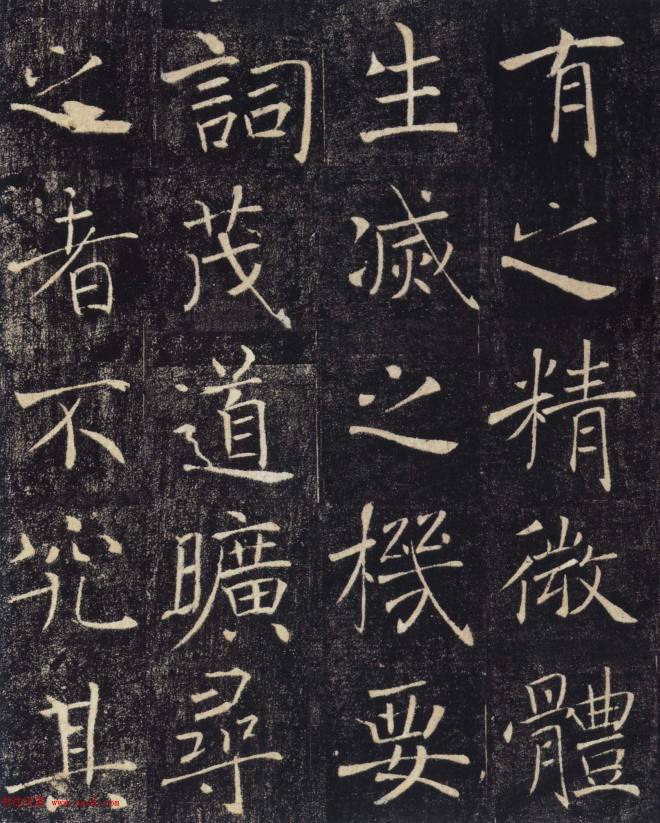 有之精微體
生滅之機要
詞茂道曠尋
之者不究其
www.yac8.com